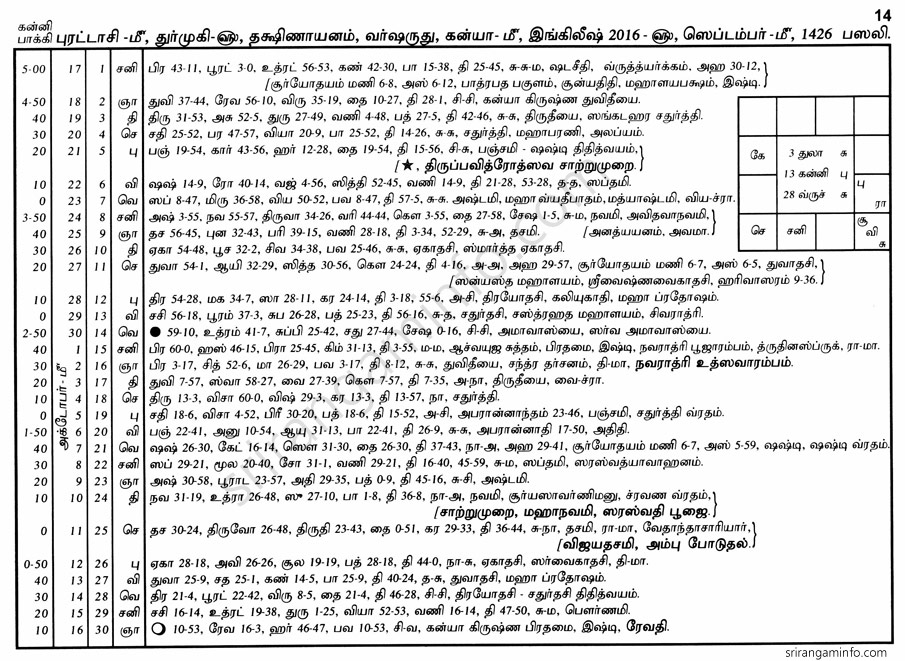 14
கன்னி
பாக்கி புரட்டாசி -மீ, துர்முகி-ஹு, தக்ஷிணாயனம், வர்ஷருது, கன்யா- மீ, இங்கிலீஷ் 2016 -ஹு, ஸெப்டம்பர் -மீ, 1426 பஸலி.
5-00 17 1 சனி பிர 43-11, பூரட் 3-0, உத்ரட் 56-53, கண் 42-30, பா 15-38, தி 25-45, சு-சு-ம, ஷடசீதி, வ்ருத்த்யர்க்கம், அஹ 30-12,
[சூர்யோதயம் மணி 6-8, அஸ் 6-12, பாத்ரபத பகுளம், சூன்யதிதி, மஹாளயபக்ஷம், இஷ்டி.
4-50 18 2 ஞா துவி 37-44, ரேவ 56-10, விரு 35-19, தை 10-27, தி 28-1, சி-சி, கன்யா கிருஷ்ண துவிதீயை.
40 19 3 தி திரு 31-53, அசு 52-5, துரு 27-49, வணி 4-48, பத் 27-5, தி 42-46, சு-சு, திருதீயை, ஸங்கடஹர சதுர்த்தி.
30 20 4 செ சதி 25-52, பர 47-57, வியா 20-9, பா 25-52, தி 14-26, சு-சு, சதுர்த்தி, மஹாபரணி, அலப்யம்.
20 21 5 பு பஞ் 19-54, கார் 43-56, ஹர் 12-28, தை 19-54, தி 15-56, சி-சு, பஞ்சமி - ஷஷ்டி திதித்வயம்,
[★, திருப்பவித்ரோத்ஸவ சாற்றுமுறை.
10 22 6 வி ஷஷ் 14-9, ரோ 40-14, வஜ் 4-56, ஸித்தி 52-45, வணி 14-9, தி 21-28, 53-28, த-த, ஸப்தமி.
0 23 7 வெ ஸப் 8-47, மிரு 36-58, விய 50-52, பவ 8-47, தி 57-5, சு-சு, அஷ்டமி, மஹா வ்யதீபாதம், மத்யாஷ்டமி, விய-ச்ரா.
3-50 24 8 சனி அஷ் 3-55, நவ 55-57, திருவா 34-26, வரி 44-44, கௌ 3-55, தை 27-58, சேஷ 1-5, சு-ம, நவமி, அவிதவாநவமி,
40 25 9 ஞா தச 56-45, புன 32-43, பரி 39-15, வணி 28-18, தி 3-34, 52-29, சு-அ, தசமி. [அனத்யயனம், அவமா.
30 26 10 தி ஏகா 54-48, பூச 32-2, சிவ 34-38, பவ 25-46, சு-சு, ஏகாதசி, ஸ்மார்த்த ஏகாதசி.
20 27 11 செ துவா 54-1, ஆயி 32-29, ஸித்த 30-56, கௌ 24-24, தி 4-16, அ-அ, அஹ 29-57, சூர்யோதயம் மணி 6-7, அஸ் 6-5, துவாதசி,
[ஸன்யஸ்த மஹாளயம், ஸ்ரீவைஷ்ணவைகாதசி, ஹரிவாஸரம் 9-36.
10 28 12 பு திர 54-28, மக 34-7, ஸா 28-11, கர 24-14, தி 3-18, 55-6, அ-சி, திரயோதசி, கலியுகாதி, மஹா ப்ரதோஷம்.
0 29 13 வி சசி 56-18, பூரம் 37-3, சுப 26-28, பத் 25-23, தி 56-16, சு-த, சதுர்தசி, சஸ்த்ரஹத மஹாளயம், சிவராத்ரி.
2-50 30 14 வெ ● 59-10, உத்ரம் 41-7, சுப்பி 25-42, சது 27-44, சேஷ 0-16, சி-சி, அமாவாஸ்யை, ஸர்வ அமாவாஸ்யை.
அக்டோபர் - மீ
40 1 15 சனி பிர 60-0, ஹஸ் 46-15, பிரா 25-45, கிம் 31-13, தி 3-55, ம-ம, ஆச்வயுஜ சுத்தம், பிரதமை, இஷ்டி, நவராத்ரி பூஜாரம்பம், த்ருதினஸ்ப்ருக், ரா-மா.
30 2 16 ஞா பிர 3-17, சித் 52-6, மா 26-29, பவ 3-17, தி 8-12, சு-சு, துவிதீயை, சந்த்ர தர்சனம், தி-மா, நவராத்ரி உத்ஸவாரம்பம்.
20 3 17 தி துவி 7-57, ஸ்வா 58-27, வை 27-39, கௌ 7-57, தி 7-35, அ-நா, திருதீயை, வை-ச்ரா.
10 4 18 செ திரு 13-3, விசா 60-0, விஷ் 29-3, கர 13-3, தி 13-57, நா, சதுர்த்தி.
0 5 19 பு சதி 18-6, விசா 4-52, பிரீ 30-20, பத் 18-6, தி 15-52, அ-சி, அபரான்னாந்தம் 23-46, பஞ்சமி, சதுர்த்தி வ்ரதம்.
1-50 6 20 வி பஞ் 22-41, அனு 10-54, ஆயு 31-13, பா 22-41, தி 26-9, சு-சு, அபரான்னாதி 17-50, அதிதி.
40 7 21 வெ ஷஷ் 26-30, கேட் 16-14, ஸௌ 31-30, தை 26-30, தி 37-43, நா-அ, அஹ 29-41, சூர்யோதயம் மணி 6-7, அஸ் 5-59, ஷஷ்டி, ஷஷ்டி வ்ரதம்.
30 8 22 சனி ஸப் 29-21, மூல 20-40, சோ 31-1, வணி 29-21, தி 16-40, 45-59, சு-ம, ஸப்தமி, ஸரஸ்வத்யாவாஹனம்.
20 9 23 ஞா அஷ் 30-58, பூரா 23-57, அதி 29-35, பத் 0-9, தி 45-16, சு-சி, அஷ்டமி.
10 10 24 தி நவ 31-19, உத்ரா 26-48, ஸு 27-10, பா 1-8, தி 36-8, நா-அ, நவமி, சூர்யஸாவர்ணிமனு, ச்ரவண வ்ரதம்,
[சாற்றுமுறை, மஹாநவமி, ஸரஸ்வதி பூஜை.
0 11 25 செ தச 30-24, திருவோ 26-48, திருதி 23-43, தை 0-51, கர 29-33, தி 36-44, சு-நா, தசமி, ரா-மா, வேதாந்தாசாரியார்,
[விஜயதசமி, அம்பு போடுதல்.
0-50 12 26 பு ஏகா 28-18, அவி 26-26, சூல 19-19, பத் 28-18, தி 44-0, நா-சு, ஏகாதசி, ஸர்வைகாதசி, தி-மா.
40 13 27 வி துவா 25-9, சத 25-1, கண் 14-5, பா 25-9, தி 40-24, த-சு, துவாதசி, மஹா ப்ரதோஷம்.
30 14 28 வெ திர 21-4, பூரட் 22-42, விரு 8-5, தை 21-4, தி 46-28, சி-சி, திரயோதசி - சதுர்தசி திதித்வயம்.
20 15 29 சனி சசி 16-14, உத்ரட் 19-38, துரு 1-25, வியா 52-53, வணி 16-14, தி 47-50, சு-ம, பௌர்ணமி.
10 16 30 ஞா 10-53, ரேவ 16-3, ஹர் 46-47, பவ 10-53, சி-வ, கன்யா கிருஷ்ண பிரதமை, இஷ்டி, ரேவதி.
கே
3 துலா சு
13 கன்னி பு
28 வ்ருச் சு
பு
ரா
செ
சனி
சூ
வி
சு
srirangaminfo.com
srirangaminfo.com